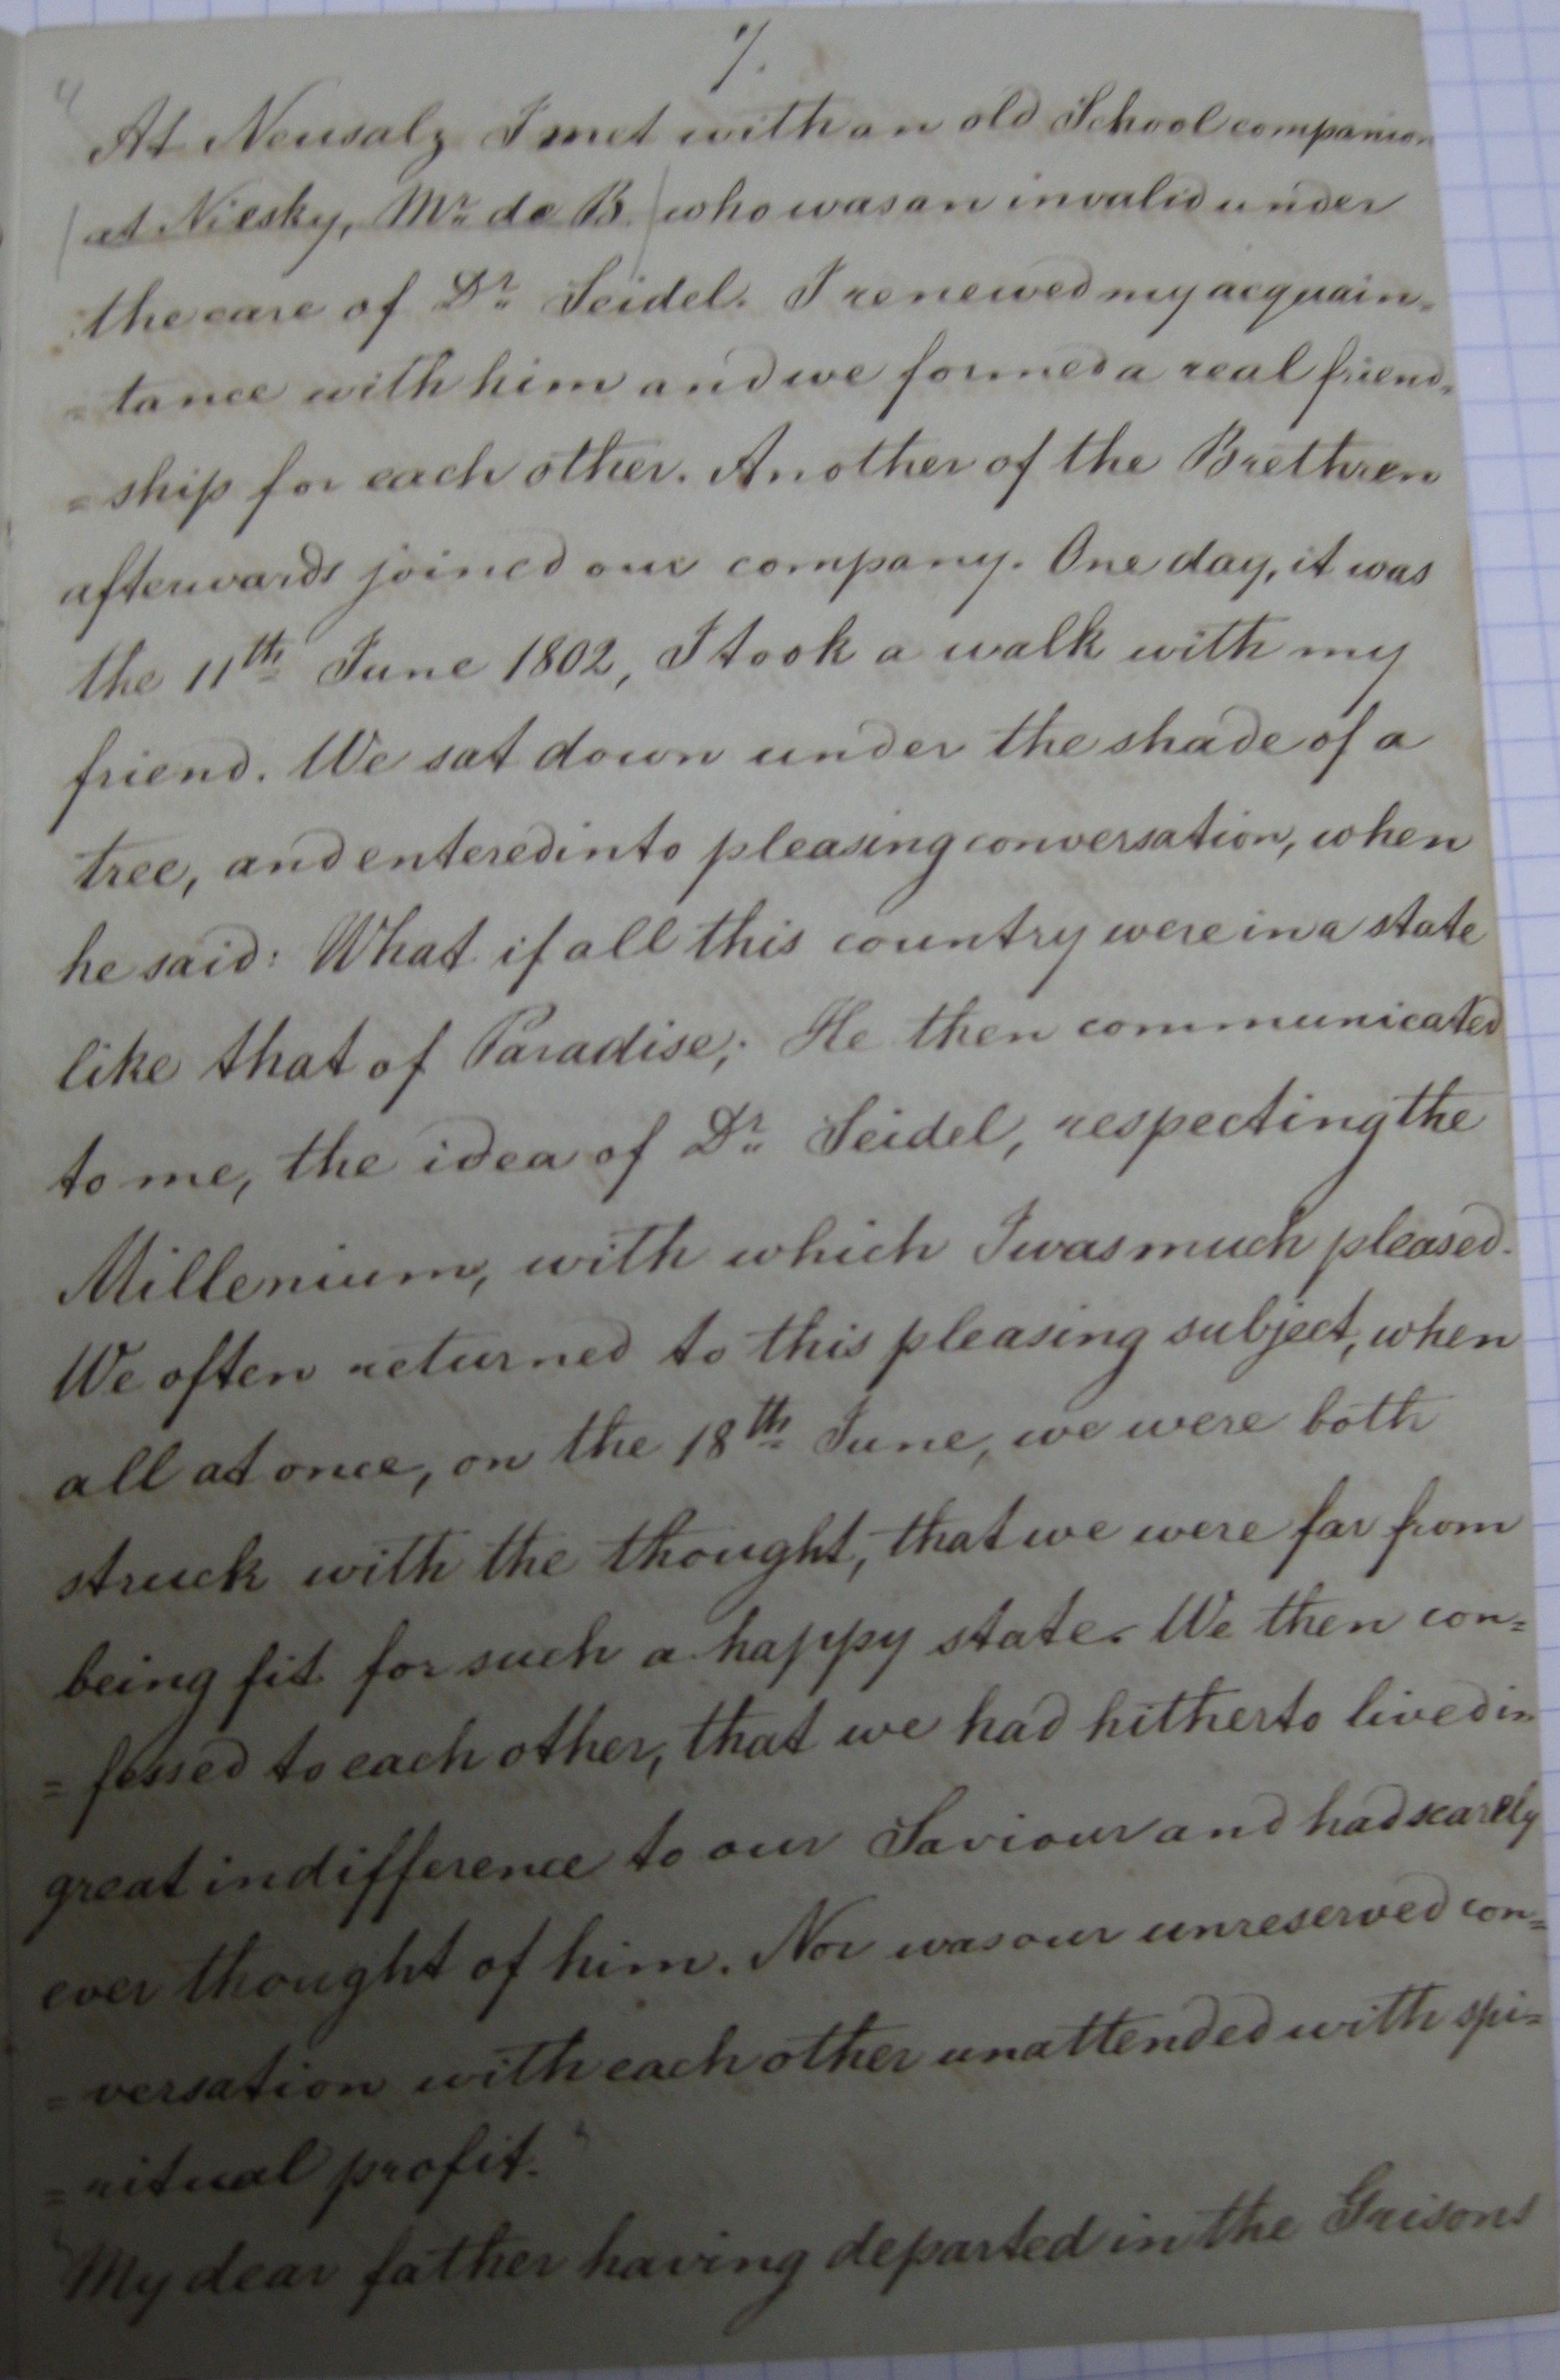 7.
" At Neusalz I met with an old School companion
(at Niesky, Mr de B.) who was an invalid under
the care of Dr Seidel. I renewed my acquain=
=tance with him and we formed a real friend=
=ship for each other. Another of the Brethren
afterwards joined our company. One day, it was
the 11th June 1802, I took a walk with my
friend. We sat down under the shade of a
tree, and entered into pleasing conversation, when
he said: What if all this country were in a state
like that of Paradise; He then communicated
to me, the idea of Dr Seidel, respecting the
Millenium, with which I was much pleased.
We often returned to this pleasing subject, when
all at once, on the 18th June, we were both
struck with the thought, that we were far from
being fit for such a happy state. We then con=
=fessed to each other, that we had hitherto lived in
great indifference to our Saviour and had scarcely
ever thought of him. Nor was our unreserved con=
=versation with each other unattended with spi=
=ritual profit."
"My dear father having departed in the Grisons